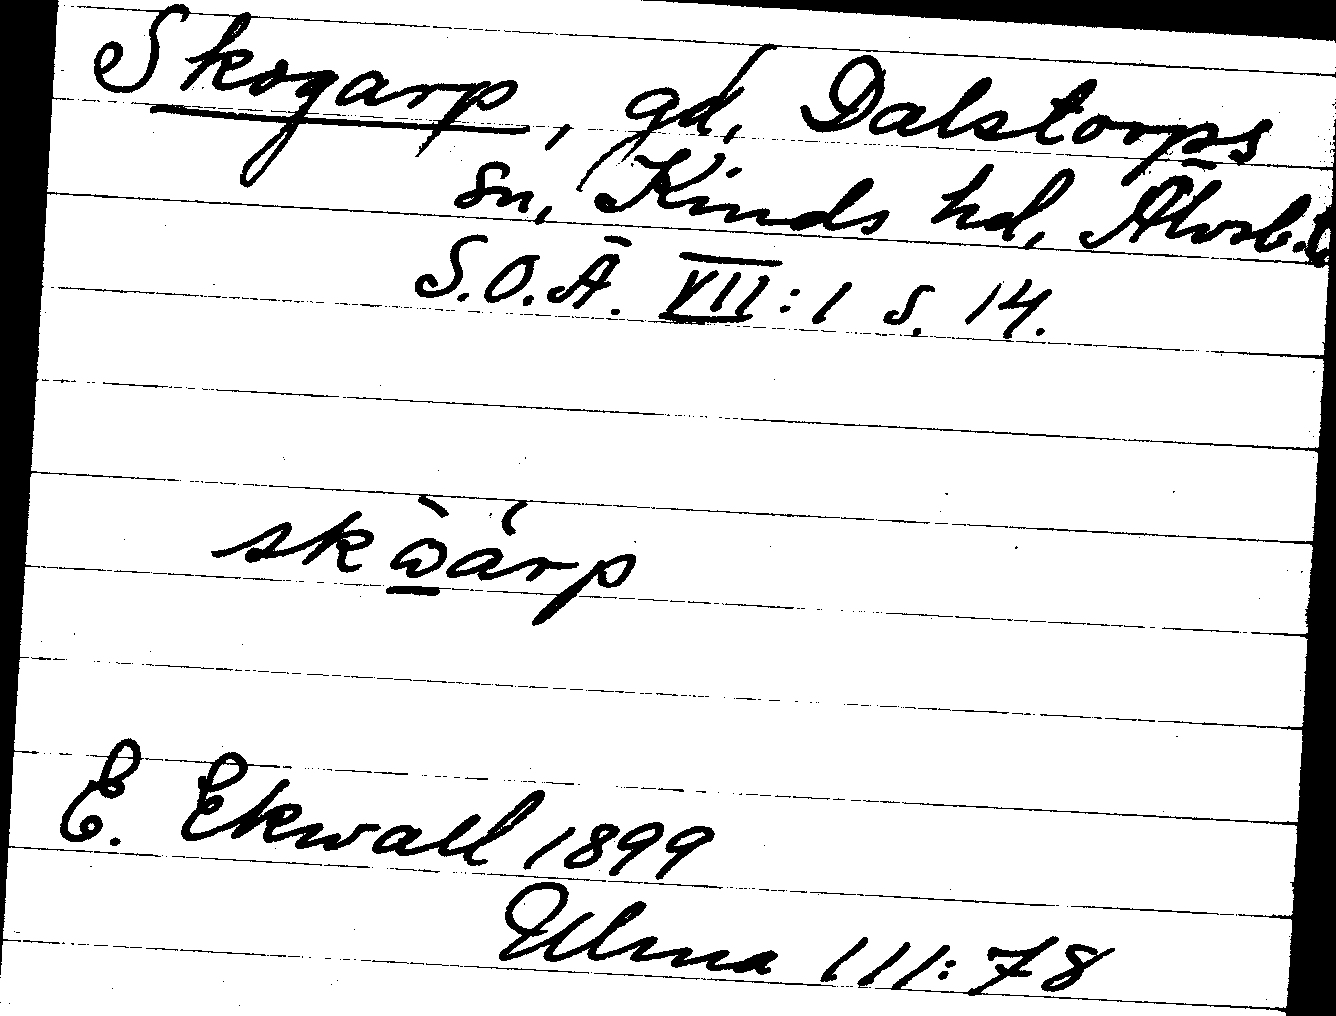 Skogarp, gd, Dalstorps
sn, Kinds hd, Älvsb. l
S.O.Ä. VII:1 s. 14.
skɷ̀̀́arp
E. Ekwall 1899
Ulma 111:78